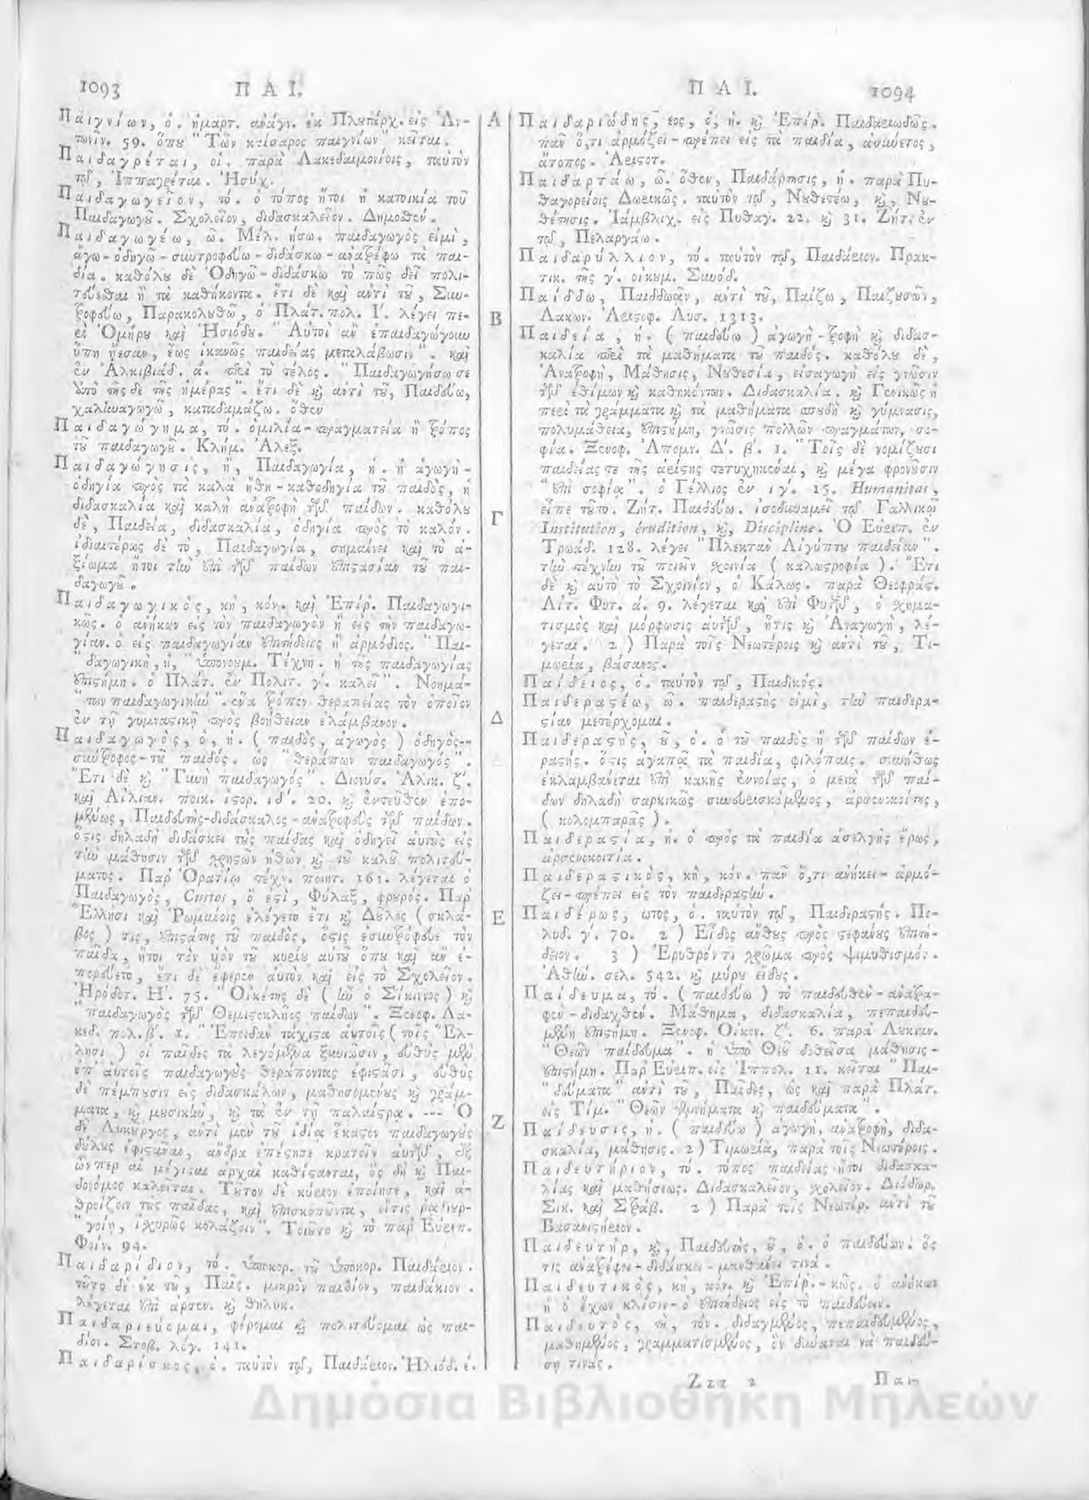 1093 ΠΑΙ.
Παιγνίων, ὁ. ἡμαρτ. ἀνάγν. ἐκ Πλουτάρχ. εἰς Ἀν-
τωνίν. 59. ὅπου "Τῶν καίσαρος παιγνίων" κεῖται.
Παιδαγρέται, οἱ. παρὰ Λακεδαιμονίοις, ταὐτὸν
τῷ, Ἱππαγρέται. Ἡσύχ.
Παιδαγωγεῖον, τό. ὁ τόπος ἤτοι ἡ κατοικία τοῦ
Παιδαγωγοῦ. Σχολεῖον, διδασκαλεῖον. Δημοσθεν.
Παιδαγωγέω, ῶ. Μέλ. ήσω. παιδαγωγὸς εἰμὶ,
ἄγω-ὁδηγῶ-συντροφεύω-διδάσκω-ἀνατρέφω τὰ παι-
δία. καθόλου δὲ Ὁδηγῶ-διδάσκω τὸ πῶς δεῖ πολι-
τεύεσθαι ἢ τὰ καθήκοντα. ἔτι δὲ καὶ ἀντὶ τοῦ, Συν-
τροφεύω, Παρακολουθῶ, ὁ Πλάτ. πολ. Ι. λέγει πε-
ρὶ Ὁμήρου καὶ Ἡσιόδου. "Αὐτοὶ ἂν ἐπαιδαγώγουν
ὅπῃ ᾔεσαν, ἕως ἱκανῶς παιδείας μεταλάβωσιν". καὶ
ἐν Ἀλκιβιάδ. ά. περὶ τὸ τέλος. "Παιδαγωγήσω σε
ἀπὸ τῆσδε τῆς ἡμέρας". ἔτι δὲ καὶ ἀντὶ τοῦ, Παιδεύω,
χαλιναγωγῶ, καταδαμάζω. ὅθεν
Παιδαγώγημα, τό. ὁμιλία-πραγματεία ἢ τρόπος
τοῦ παιδαγωγοῦ. Κλήμ. Ἀλεξ.
Παιδαγώγησις, ἡ, Παιδαγωγία, ἡ. ἡ ἀγωγὴ-
ὁδηγία πρὸς τὰ καλὰ ἤθη-καθοδηγία τοῦ παιδὸς, ἡ
διδασκαλία καὶ καλὴ ἀνατροφὴ τῶν παίδων. καθόλου
δὲ, Παιδεία, διδασκαλία, ὁδηγία πρὸς τὸ καλόν.
ἰδιαιτέρως δὲ τὸ, Παιδαγωγία, σημαίνει καὶ τὸ ἀ-
ξίωμα ἤτοι τὴν ἐπὶ τῶν παίδων ἐπιστασίαν τοῦ παι-
δαγωγοῦ.
Παιδαγωγικὸς, κὴ, κόν. καὶ Ἐπίρ. Παιδαγωγι-
κῶς. ὁ ἀνήκων εἰς τὸν παιδαγωγὸν ἢ εἰς τὴν παιδαγω-
γίαν. ὁ εἰς παιδαγωγίαν ἐπιτήδειος ἢ ἁρμόδιος. "Παι-
"δαγωγικὴ, ἡ, ὑπονουμ. Τέχνη. ἡ τῆς παιδαγωγίας
ἐπιστήμη. ὁ Πλάτ. ἐν Πολιτ. γ΄. καλεῖ". Νοσημά-
"των παιδαγωγικὴν". ἕνα τρόπον θεραπείας τὸν ὁποῖον
ἐν τῇ γυμναστικῇ πρὸς βοήθειαν ἐλάμβανον.
Παιδαγωγὸς, ὁ, ἡ. (παιδὸς, ἀγωγὸς) ὁδηγὸς-
σύντροφος-τοῦ παιδός. ὡς "θεράπων παιδαγωγός".
Ἔτι δὲ καὶ "Γυνὴ παιδαγωγός". Διονύσ. Ἁλικ. ζ΄.
καὶ Αἰλιαν. ποικ. ἱστορ. ιδ΄. 20. καὶ ἐντεῦθεν ἑπο-
μένως, Παιδευτὴς-διδάσκαλος-ἀνατροφεὺς τῶν παίδων.
ὅστις δηλαδὴ διδάσκει τοὺς παῖδας καὶ ὁδηγεῖ αὐτοὺς εἰς
τὴν μάθησιν τῶν χρηστῶν ἠθῶν καὶ τοῦ καλοῦ πολιτεύ-
ματος. Παρ' Ὁρατίῳ τέχν. ποιητ. 161. λέγεται ὁ
Παιδαγωγὸς, Custos, ὅ ἐστι, Φύλαξ, φρουρός. Παρ'
Ἕλλησι καὶ Ῥωμαίοις ἐλέγετο ἔτι καὶ Δοῦλος (σκλά-
βος) τις, ἐπιστάτης τοῦ παιδὸς, ὅστις ἐσυντρόφευε τὸν
παῖδα, ἤτοι τὸν υἱὸν τοῦ κυρίου αὐτοῦ ὅπου καὶ ἂν ἐ-
πορεύετο, ἔτι δὲ ἔφερεν αὐτὸν καὶ εἰς τὸ Σχολεῖον.
Ἡρόδοτ. Η΄. 75. "Οἰκέτης δὲ (ἦν ὁ Σίκιννος) καὶ
"παιδαγωγὸς τῶν Θεμιστοκλῆος παίδων". Ξενοφ. Λα-
κεδ. πολ. β΄. 1. "Ἐπειδὰν τάχιστα αὐτοῖς (τοῖς Ἕλ-
λησι) οἱ παῖδες τὰ λεγόμενα ξυνιῶσιν, εὐθὺς μὲν
ἐπ' αὐτοῖς παιδαγωγοὺς θεράποντας ἐφιστᾶσι, εὐθὺς
δὲ πέμπουσιν εἰς διδασκάλων, μαθησομένους καὶ γράμ-
ματα, καὶ μουσικὴν, καὶ τὰ ἐν τῇ παλαίστρᾳ. --- Ὁ
δὲ Λυκοῦργος, ἀντὶ μὲν τοῦ ἰδίᾳ ἕκαστον παιδαγωγοὺς
δούλους ἐφιστάναι, ἄνδρα ἐπέστησε κρατεῖν αὐτῶν, ἐξ
ὧνπερ αἱ μέγισται ἀρχαὶ καθίστανται, ὃς δὴ καὶ Παι-
δονόμος καλεῖται. Τοῦτον δὲ κύριον ἐποίησε, καὶ ἀ-
θροίζειν τοὺς παῖδας, καὶ ἐπισκοποῦντα, εἴτις ῥᾳδιουρ-
"γοίη, ἰσχυρῶς κολάζειν". Τοιοῦτο καὶ τὸ παρ' Εὐριπ.
Φοίν. 94.
Παιδαρίδιον, τό. ὑποκορ. τοῦ ὑποκορ. Παιδάριον.
τοῦτο δὲ ἐκ τοῦ, Παῖς. μικρὸν παιδίον, παιδάκιον.
λέγεται ἐπὶ ἀρσεν. καὶ θηλυκ.
Παιδαριεύομαι, φέρομαι καὶ πολιτεύομαι ὡς παι-
δίον. Στοβ. λόγ. 141.
Παιδαρίσκος, ὁ. ταὐτὸν τῷ, Παιδάριον. Ἡλιόδ. έ.
Α
Β
Γ
Δ
Ε
Ζ
ΠΑΙ. 1094
Παιδαριώδης, εος, ὁ, ἡ. καὶ Ἐπίρ. Παιδαριωδῶς.
πᾶν ὅ,τι ἁρμόζει-πρέπει εἰς τὰ παιδία, ἀσύνετος,
ἄτοπος. Ἀριστοτ.
Παιδαρτάω, ῶ. ὅθεν, Παιδάρτησις, ἡ. παρὰ Πυ-
θαγορείοις Δωρικῶς. ταὐτὸν τῷ, Νουθετέω, καὶ, Νου-
θέτησις. Ἰάμβλιχ. εἰς Πυθαγ. 22. καὶ 31. Ζήτ. ἐν
τῷ, Πελαργάω.
Παιδαρύλλιον, τό. ταὐτὸν τῷ, Παιδάριον. Πρακ-
τικ. τῆς γ΄. οἰκουμ. Συνόδ.
Παίδδω, Παιδδωᾶν, ἀντὶ τοῦ, Παίζω, Παιζουσῶν,
Λακων. Ἀριστοφ. Λυσ. 1313.
Παιδεία, ἡ. (παιδεύω) ἀγωγὴ-τροφὴ καὶ διδασ-
καλία περὶ τὰ μαθήματα τοῦ παιδός. καθόλου δὲ,
Ἀνατροφὴ, Μάθησις, Νουθεσία, εἰσαγωγὴ εἰς γνῶσιν
τῶν ἐθίμων καὶ καθηκόντων. Διδασκαλία. καὶ Γενικῶς ἡ
περὶ τὰ γράμματα καὶ τὰ μαθήματα σπουδὴ καὶ γύμνασις,
πολυμάθεια, ἐπιστήμη, γνῶσις πολλῶν πραγμάτων, σο-
φία. Ξενοφ. Ἀπομν. Δ΄. β΄. 1. "Τοῖς δὲ νομίζουσι
παιδείας τε τῆς ἀρίστης τετυχηκέναι, καὶ μέγα φρονοῦσιν
"ἐπὶ σοφίᾳ". ὁ Γέλλιος ἐν ιγ΄. 15. Humanitas,
εἶπε τοῦτο. Ζήτ. Παιδεύω. ἰσοδυναμεῖ τῷ Γαλλικῷ
Institution, érudition, καὶ, Discipline. Ὁ Εὐριπ. ἐν
Τρωάδ. 128. λέγει "Πλεκτὰν Αἰγύπτου παιδείαν".
τὴν τέχνην τοῦ ποιεῖν σχοινία (καλωστροφία). Ἔτι
δὲ καὶ αὐτὸ τὸ Σχοινίον, ὁ Κάλως. παρὰ Θεοφράστ.
Αἰτ. Φυτ. ά. 9. λέγεται καὶ ἐπὶ Φυτῶν, ὁ σχημα-
τισμὸς καὶ μόρφωσις αὐτῶν, ἥτις καὶ Ἀναγωγὴ, λέ-
γεται. 2) Παρὰ τοῖς Νεωτέροις καὶ ἀντὶ τοῦ, Τι-
μωρία, βάσανος.
Παίδειος, ὁ. ταὐτὸν τῷ, Παιδικός.
Παιδεραστέω, ῶ. παιδεραστὴς εἰμὶ, τὴν παιδερα-
στίαν μετέρχομαι.
Παιδεραστὴς, οῦ, ὁ. ὁ τοῦ παιδὸς ἢ τῶν παίδων ἐ-
ραστής. ὅστις ἀγαπᾷ τὰ παιδία, φιλόπαις. συνήθως
ἐκλαμβάνεται ἐπὶ κακῆς ἐννοίας, ὁ μετὰ τῶν παί-
δων δηλαδὴ σαρκικῶς συνευρισκόμενος, ἀρσενοκοίτης,
(κολομπαρᾶς).
Παιδεραστία, ἡ. ὁ πρὸς τὰ παιδία ἀσελγὴς ἔρως,
ἀρσενοκοιτία.
Παιδεραστικὸς, κὴ, κόν. πᾶν ὅ,τι ἀνήκει-ἁρμό-
ζει-πρέπει εἰς τὸν παιδεραστήν.
Παιδέρως, ωτος, ὁ. ταὐτὸν τῷ, Παιδεραστής. Πο-
λυδ. γ΄. 70. 2) Εἶδος ἄνθους πρὸς στεφάνους ἐπιτή-
δειον. 3) Ἐρυθρόν τι χρῶμα πρὸς ψιμυθισμόν.
Ἀθήν. σελ. 542. καὶ μύρου εἶδος.
Παίδευμα, τό. (παιδεύω) τὸ παιδευθὲν-ἀνατρα-
φὲν-διδαχθέν. Μάθημα, διδασκαλία, πεπαιδευ-
μένη ἐπιστήμη. Ξενοφ. Οἰκον. ζ΄. 6. παρὰ Λυκιαν.
"Θεῶν παίδευμα". ἡ ὑπὸ Θεοῦ δοθεῖσα μάθησις-
ἐπιστήμη. Παρ' Εὐριπ. εἰς Ἱππολ. 11. κεῖται "Παι-
"δεύματα" ἀντὶ τοῦ, Παῖδες, ὡς καὶ παρὰ Πλάτ.
εἰς Τίμ. "Θεῶν γεννήματα καὶ παιδεύματα".
Παίδευσις, ἡ. (παιδεύω) ἀγωγὴ, ἀνατροφὴ, διδα-
σκαλία, μάθησις. 2) Τιμωρία, παρὰ τοῖς Νεωτέροις.
Παιδευτήριον, τό. τόπος παιδείας ἤτοι διδασκα-
λίας καὶ μαθήσεως. Διδασκαλεῖον, σχολεῖον. Διόδωρ.
Σικ. καὶ Στράβ. 2) Παρὰ τοῖς Νεωτέρ. ἀντὶ τοῦ
Βασανιστήριον.
Παιδευτὴρ, καὶ, Παιδευτὴς, οῦ, ὁ. ὁ παιδεύων. ὅς
τις ἀνατρέφει-διδάσκει-μανθάνει τινά.
Παιδευτικὸς, κὴ, κόν. καὶ Ἐπίρ.-κῶς. ὁ ἀνήκων
ἢ ὁ ἔχων κλίσιν-ὁ ἐπιτήδειος εἰς τὸ παιδεύειν.
Παιδευτὸς, τὴ, τόν. διδαγμένος, πεπαιδευμένος,
μαθημένος, γραμματισμένος, ὃν δύναται νὰ παιδεύ-
σῃ τινάς.
Ζzz 2 Παι-
Δημόσια Βιβλιοθήκη Μηλεών